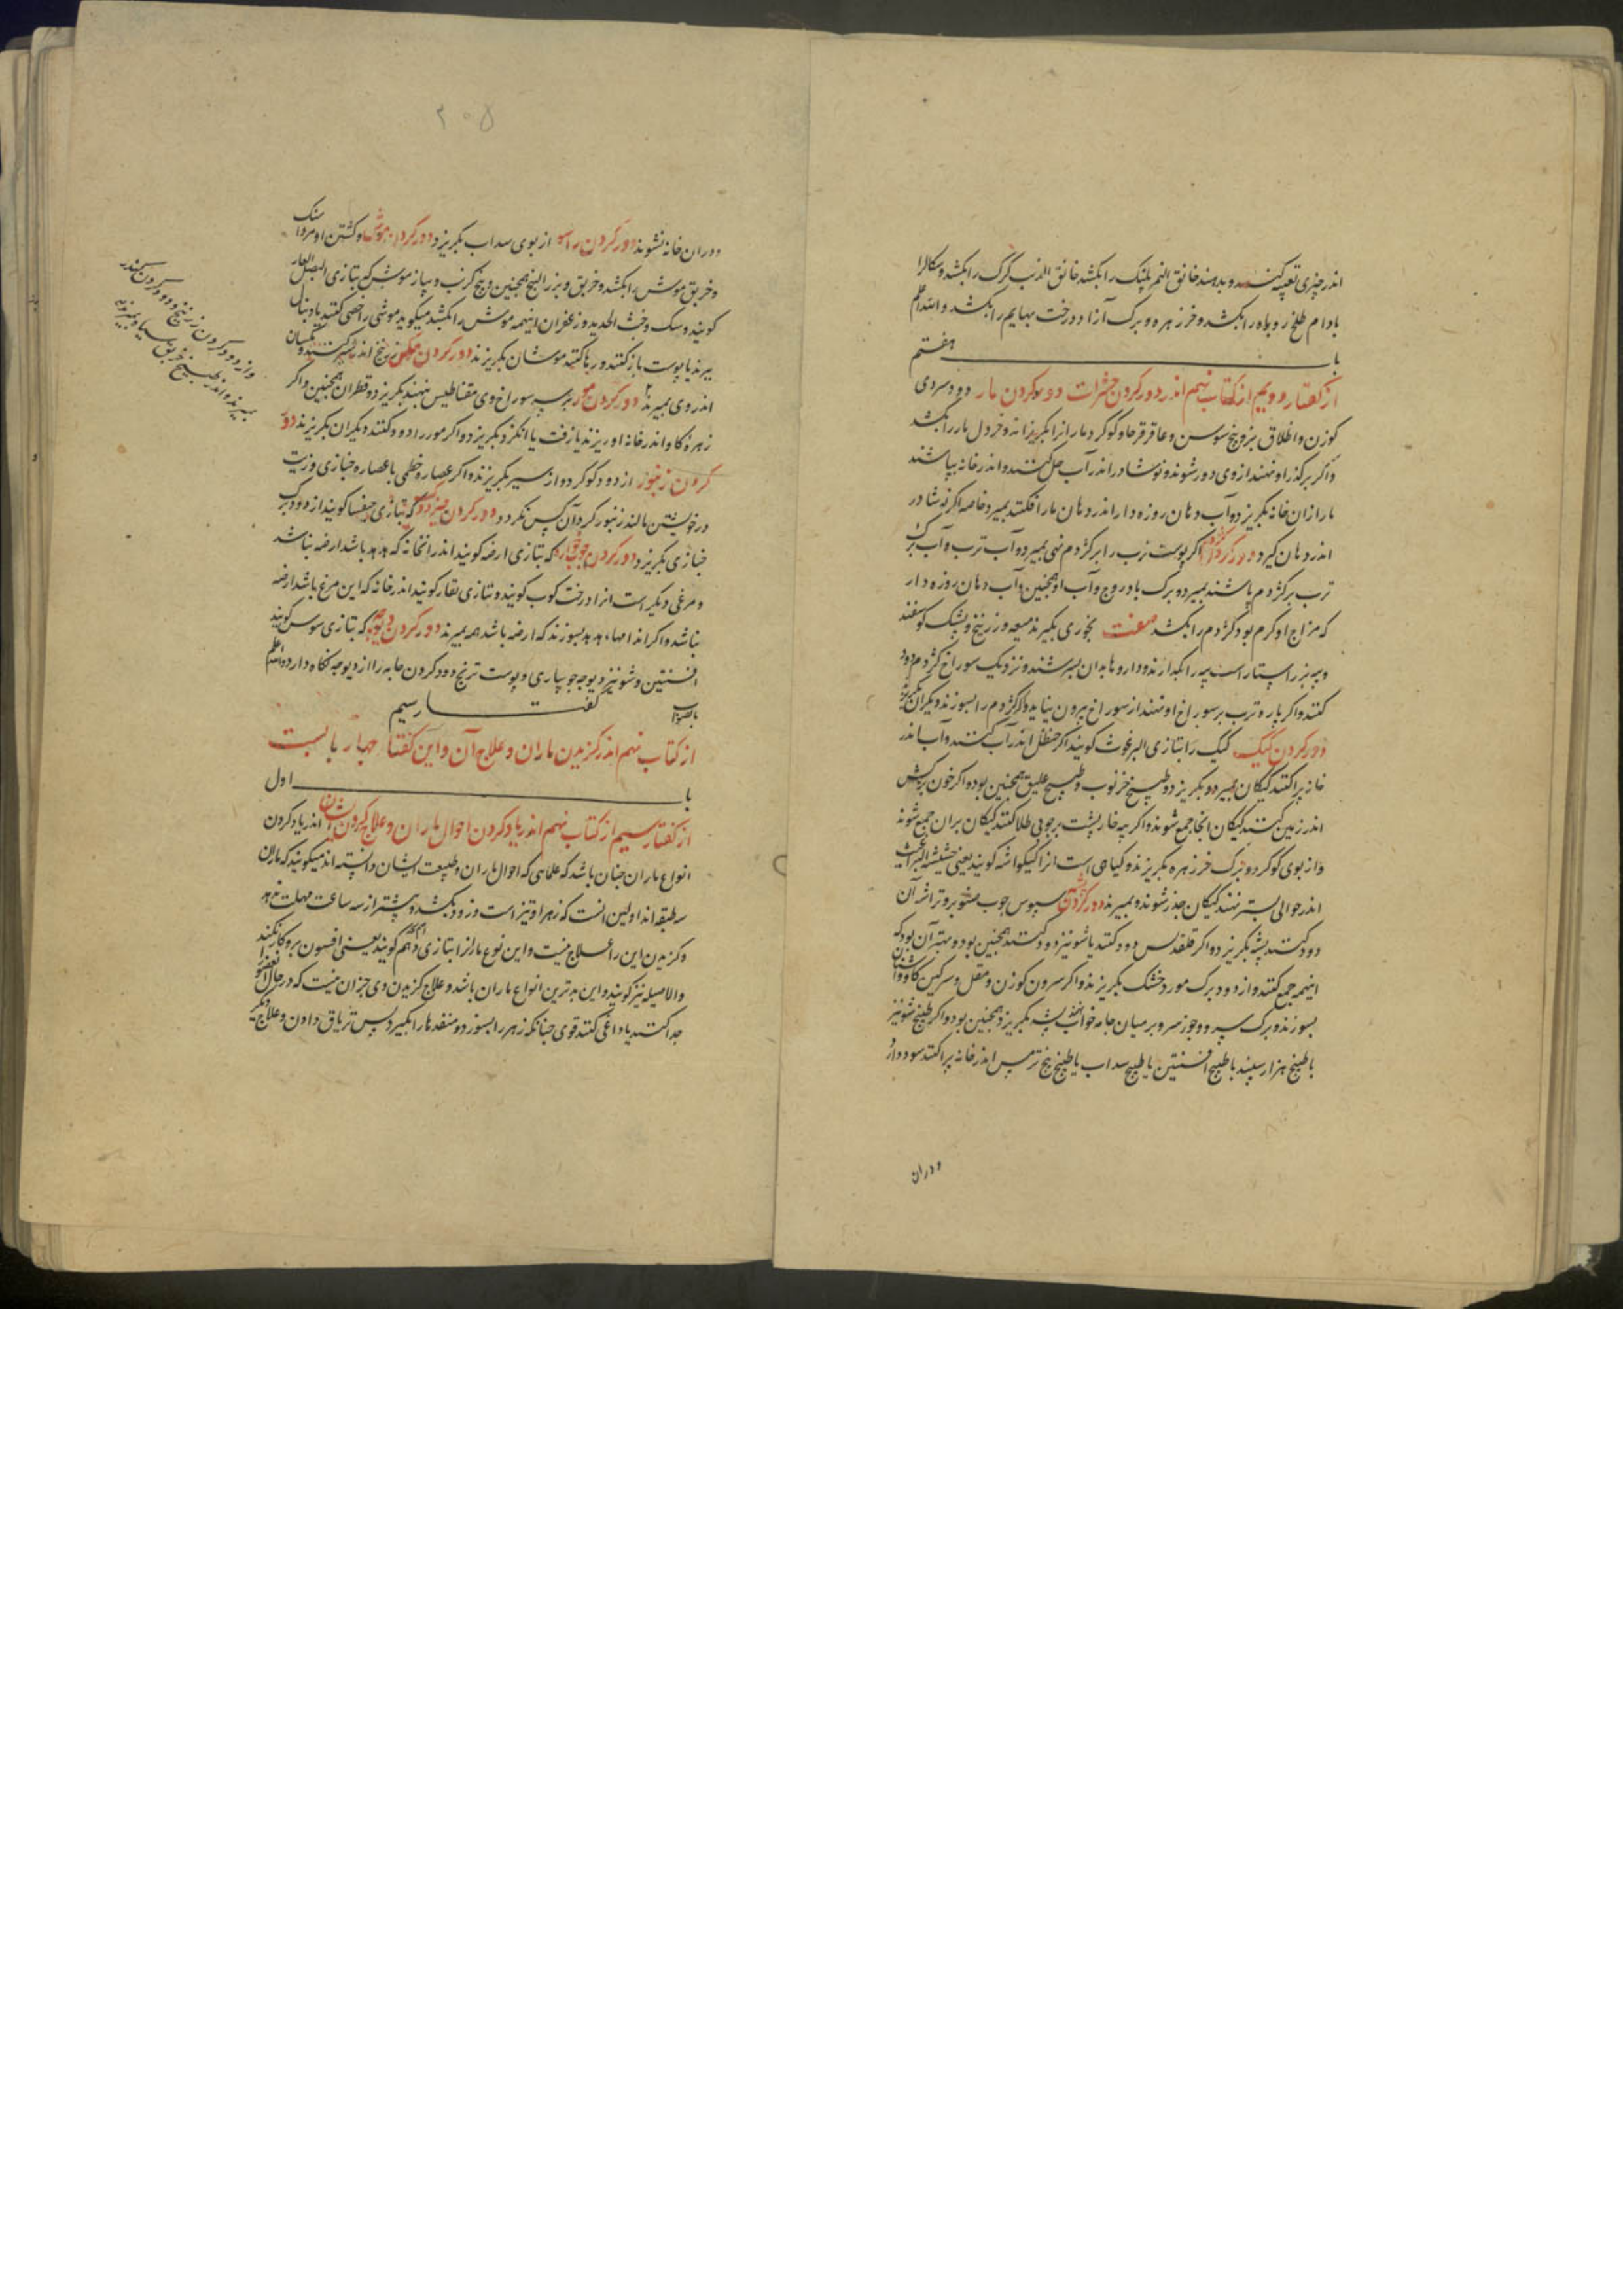 اندر چیزی تعبیه کنند و بدهند خانق النمر پلنک را بکشد خانق الذئب کرک را بکشد و سکالرا
بادام طلخ روباه را بکشد و خرزهره و برک آزاد درخت بهایم را بکشد والله اعلم
باب هفتم
از کفتار دویم از کتاب نهم اندر دور کردن حشرات دور کردن مار دود سروی
کوزن و اظلاف بز و بیخ سوسن و عاقرقرحا و کوکرد مارانرا بکریزاند و خردل مار را بکشد
و اکر بر کذر او نهند از وی دور شوند و نوشادر اندر آب حل کنند و اندر خانه بپاشند
مار ازان خانه بکریزد و آب دهان روزه دار اندر دهان مار افکنند بمیرد خاصه اکر نوشادر
اندر دهان کیرد دور کردن کژدم اکر پوست ترب را بر کژدم نهی بمیرد و آب ترب و آب برک
ترب بر کژدم پاشند بمیرد و برک بادروج و آب او همچنین و آب دهان روزه دار
که مزاج او کرم بود کژدم را بکشد صفت بخوری بکیرند میعه و زرنیخ و پشک کوسفند
و پیه بز راستاراست پیه را بکدازند و داروها بدان بسرشند و نزدیک سوراخ کژدم دود
کنند و اکر پاره ترب بر سوراخ او نهند از سوراخ بیرون نیاید و اکر کژدم را بسوزند دیکران بکریزند
دور کردن کیک کیک را بتازی البرغوث کویند اکر حنظل اندر آب کنند و آب اندر
خانه پراکنند کیکان بمیرد و بکریزد و طبیخ خرنوب و طبیخ علیق همچنین بود و اکر خون بز کش
اندر زمین کنند کیکان انجا جمع شوند و اکر پیه خارپشت بر چوبی طلا کنند کیکان بران جمع شوند
و از بوی کوکرد و برک خرزهره بکریزند و کیاهی است انرا کیکواشه کویند یعنی حشیشة البراغیث
اندر حوالی بستر نهند کیکان خدر شوند و بمیرند دور کردن پشه سبوس چوب صنوبر و تراشه آن
دود کنند پشه بکریزد و اکر قلقدیس دود کنند یا شونیز دود کنند همچنین بود و بهتر آن بود که
اینهمه جمع کنند و از دود برک مورد خشک بکریزند و اکر سرون کوزن و مقل و سرکین کاو و اشنان
بسوزند و برک سرو و جوز سرو بر میان جامه خواب نهند پشه بکریزد همچنین بود و اکر طبیخ شونیز
یا طبیخ هزار سپند یا طبیخ افسنتین یا طبیخ سداب یا طبیخ بیخ ترمس اندر خانه پراکنند سود دارد
و دران
۲۰۵
و دران خانه نشوند دور کردن راسو از بوی سداب بکریزد دور کردن موش و کشتن او مرداسنک
و خربق موش را بکشد و خربق و بزر البنج همچنین و بیخ کرنب و پیاز موش که بتازی البصل الفار
کویند و سک و خبث الحدید و زعفران اینهمه موش را بکشد میکویند موشی را خصی کنند یا دنبال
ببرند یا پوست باز کنند و رها کنند موشان بکریزند دور کردن مکس زرنیخ اندر شیر کنند و مکسان
اندر وی بمیرند دور کردن مور بر سر سوراخ وی مقناطیس نهند بکریزد و قطران همچنین و اکر
زهره کاو اندر خانه او ریزند یا زفت یا انکزد بکریزد و اکر مور را دود کنند دیکران بکریزند دور
کردن زنبور از دود کوکرد و از سیر بکریزند و اکر عصاره خطمی با عصاره خبازی و زیت
در خویشتن مالند زنبور کرد آن کس نکردد دور کردن خبزدوک که بتازی خنفسا کویند از دود برک
خبازی بکریزد دور کردن چوبخواره که بتازی ارضه کویند اندر انخانه که هدهد باشد ارضه نباشد
و مرغی دیکر است انرا درخت کوب کویند و بتازی نقار کویند اندر خانه که این مرغ باشد ارضه
نباشد و اکر اندامهاء هدهد بسوزند که ارضه باشد همه بمیرند دور کردن دیوچه که بتازی سوس کویند
افسنتین و شونیز دیوچه جو پیاری و پوست ترنج و دود کردن جامه را از دیوچه نکاه دارد والله اعلم
بالصواب
کفتار سیم
از کتاب نهم اندر کزیدن ماران و علاج آن و این کفتار چهار بابست
باب اول
از کفتار سیم از کتاب نهم اندر یاد کردن احوال ماران و علاج کزیدن ایشان اندر یاد کردن
انواع ماران چنان باشد که علمای که احوال ماران و طبیعت ایشان دانسته اند میکویند که ماران
سه طبقه اند اولین انست که زهر او تیز است و زود بکشد و بیشتر از سه ساعت مهلت ندهد
و کزیدن این را علاج نیست و این نوع مار انرا بتازی اصم کویند یعنی افسون برو کار نکند
والاصیله نیز کویند و این بدترین انواع ماران باشد و علاج کزیدن وی جز ان نیست که در حال ان عضو را
جدا کنند یا داغی کنند قوی چنانکه زهر را بسوزد و منفذها را بکیرد پس تریاق دادن و علاج دیکر
و از دود کردن زرنیخ و دود کردن کندر
بمیرند و اندر طبیخ خربق سیاه بمیرند